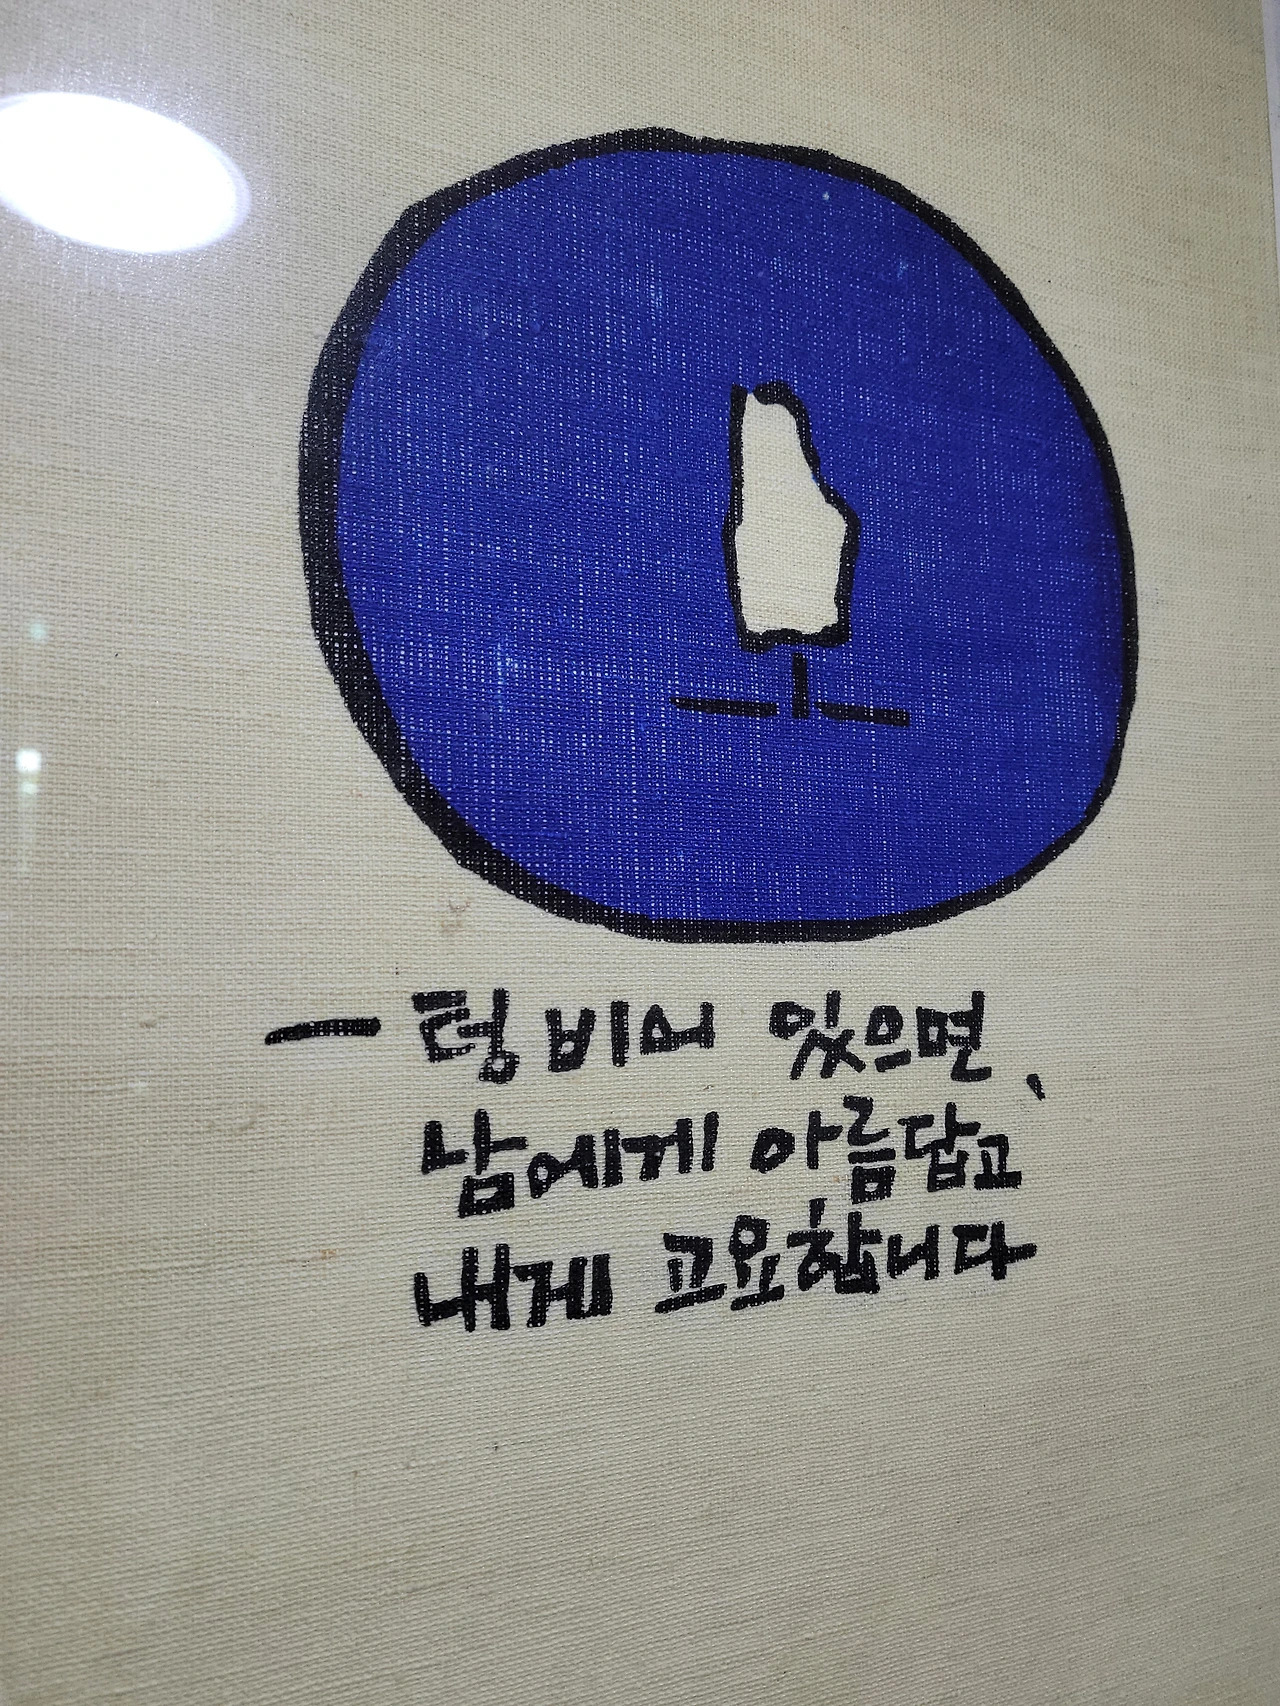 — 텅 비어 있으면,
남에게 아름답고
내게 고요합니다